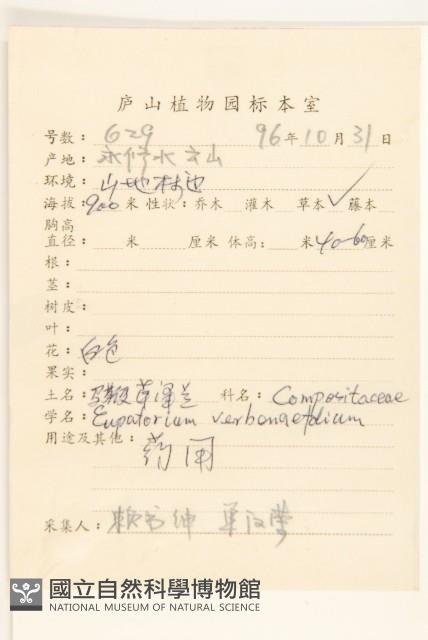 庐山植物园标本室
号数：629 96年10月31日
产地：永修水云山
环境：山地林边
海拔：900米 性状：乔木 灌木 草本✓ 藤本
胸高
直径： 米 厘米 体高： 米40-60厘米
根：
茎：
树皮：
叶：
花：白色
果实：
土名：马鞭草泽兰 科名：Compositaceae
学名：Eupatorium verbenaefolium
用途及其他：药用
采集人：赖书绅 单汉荣
國立自然科學博物館
NATIONAL MUSEUM OF NATURAL SCIENCE